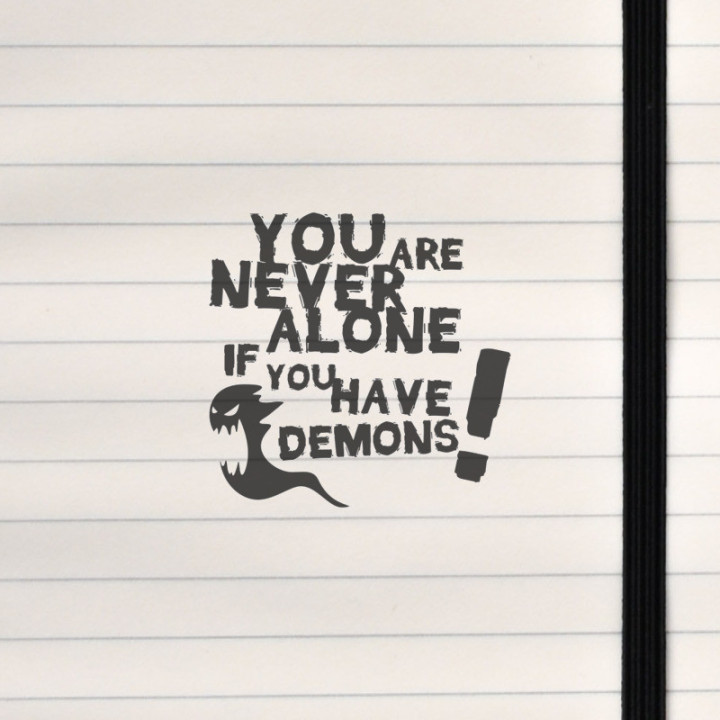 YOU ARE
NEVER
ALONE
IF YOU HAVE
DEMONS!